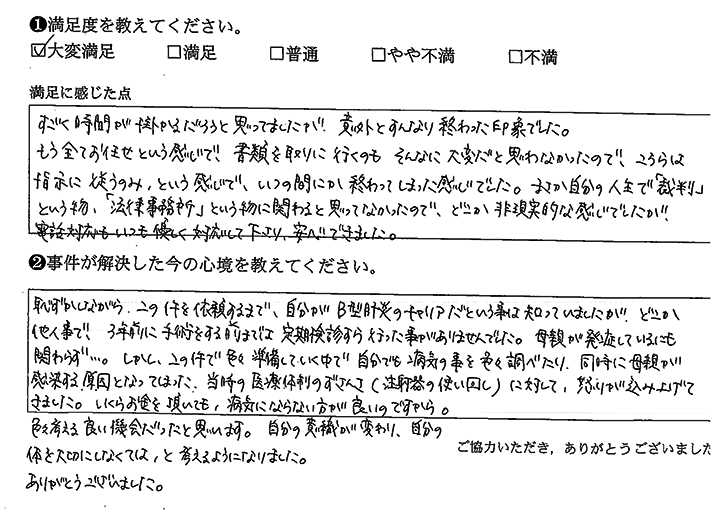 ❶満足度を教えてください。
☑大変満足 □満足 □普通 □やや不満 □不満
満足に感じた点
すごく時間が掛かるだろうと思ってましたが、意外とすんなり終わった印象でした。
もう全てお任せという感じで、書類を取りに行くのもそんなに大変だと思わなかったので、こちらは
指示に従うのみ、という感じで、いつの間にか終わってしまった感じでした。まさか自分の人生で「裁判」
という物、「法律事務所」という物に関わると思ってなかったので、どこか非現実的な感じでしたが、
電話対応もいつも優しく対応して下さり、安心できました。
❷事件が解決した今の心境を教えてください。
恥ずかしながら、この件を依頼するまで、自分がB型肝炎のキャリアだという事は知っていましたが、どこか
他人事で、3年前に手術をする前までは定期検診すら行った事がありませんでした。母親が発症しているにも
関わらず…。しかし、この件で色々準備していく中で自分でも病気の事を色々調べたり、同時に母親が
感染する原因となってしまった、当時の医療体制のずさんさ(注射器の使い回し)に対して、怒りが込み上げて
きました。いくらお金を頂いても、病気にならない方が良いのですから。
色々考える良い機会だったと思います。自分の意識が変わり、自分の
体を大切にしなくては、と考えるようになりました。
ご協力いただき、ありがとうございました
ありがとうございました。